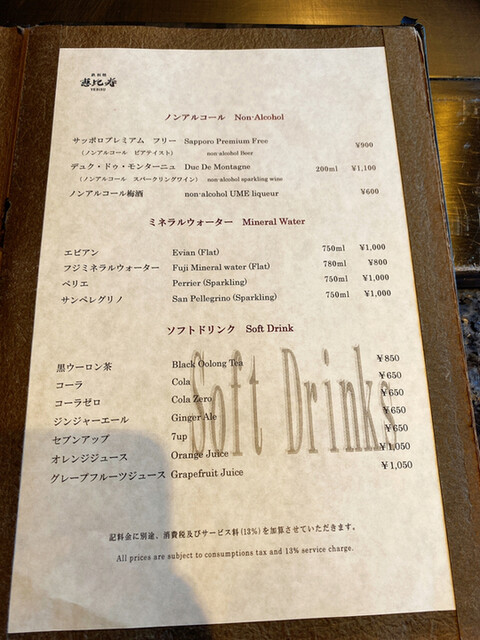 鉄板焼
恵比寿
YEBISU
ノンアルコール Non-Alcohol
サッポロプレミアム フリー Sapporo Premium Free ¥900
(ノンアルコール ビアテイスト) non-alcohol Beer
デュク・ドゥ・モンターニュ Duc De Montagne 200ml ¥1,100
(ノンアルコール スパークリングワイン) non-alcohol sparkling wine
ノンアルコール梅酒 non-alcohol UME liqueur ¥600
ミネラルウォーター Mineral Water
エビアン Evian (Flat) 750ml ¥1,000
フジミネラルウォーター Fuji Mineral water (Flat) 780ml ¥800
ペリエ Perrier (Sparkling) 750ml ¥1,000
サンペレグリノ San Pellegrino (Sparkling) 750ml ¥1,000
ソフトドリンク Soft Drink
黒ウーロン茶 Black Oolong Tea ¥850
コーラ Cola ¥650
コーラゼロ Cola Zero ¥650
ジンジャーエール Ginger Ale ¥650
セブンアップ 7up ¥650
オレンジジュース Orange Juice ¥1,050
グレープフルーツジュース Grapefruit Juice ¥1,050
Soft Drinks
記料金に別途、消費税及びサービス料(13%)を加算させていただきます。
All prices are subject to consumptions tax and 13% service charge.